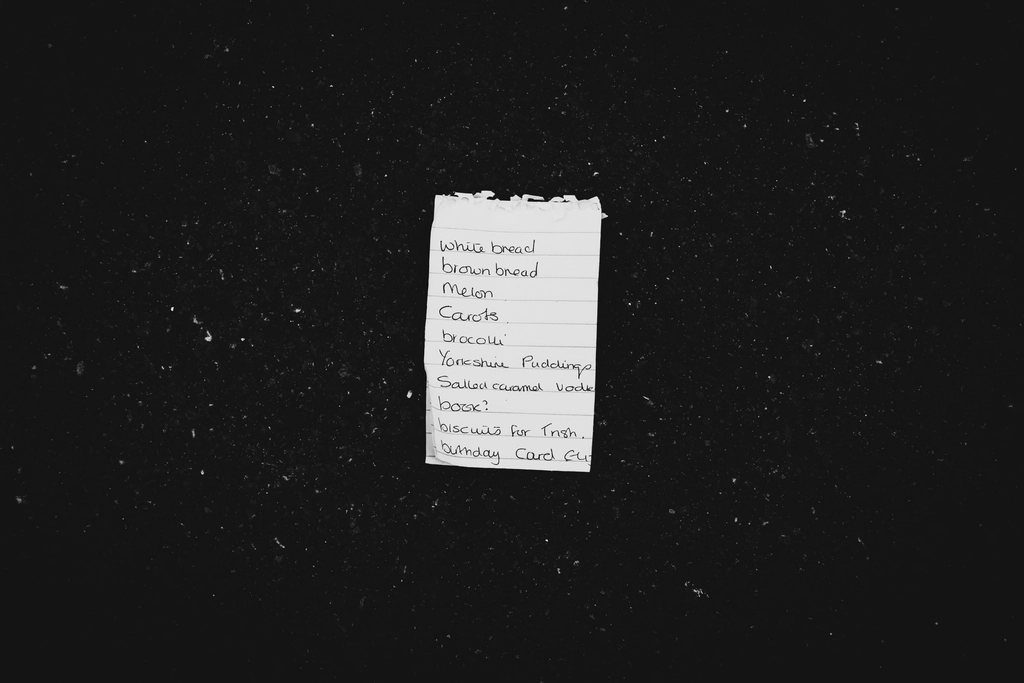 white bread
brown bread
Melon
Carots
brocolli
Yorkshire Puddings
Salted caramel vodk
book?
biscuits for Trish.
birthday Card